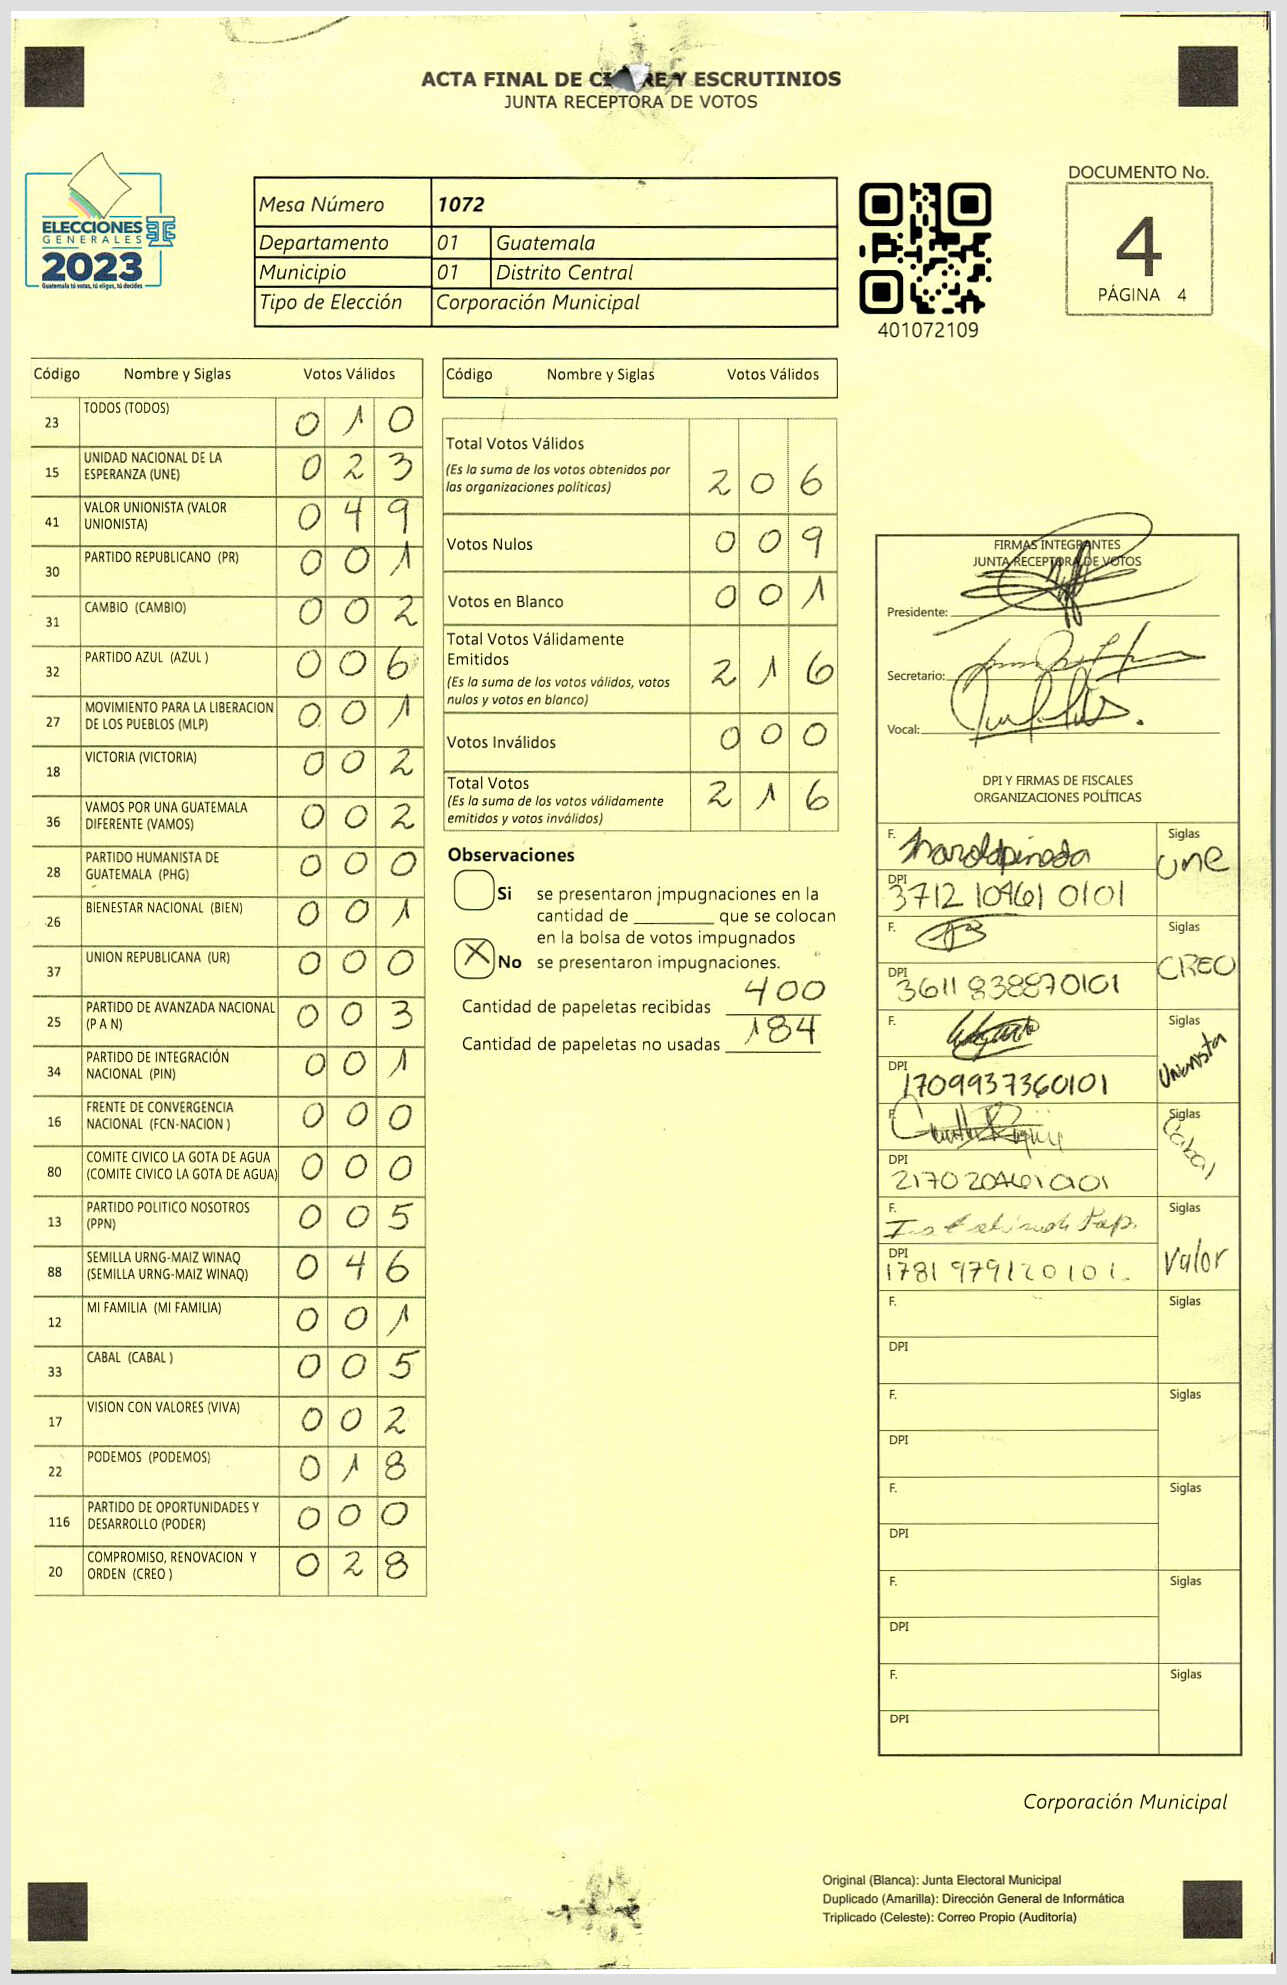 ACTA FINAL DE CI RE Y ESCRUTINIOS
JUNTA RECEPTORA DE VOTOS
ELECCIONES
GENERALES
2023
Guatemala tú votas, tú eliges, tú decides
Mesa Número 1072
Departamento 01 Guatemala
Municipio 01 Distrito Central
Tipo de Elección Corporación Municipal
401072109
DOCUMENTO No.
4
PÁGINA 4
Código Nombre y Siglas Votos Válidos
23 TODOS (TODOS) 0 1 0
15 UNIDAD NACIONAL DE LA
ESPERANZA (UNE) 0 2 3
41 VALOR UNIONISTA (VALOR
UNIONISTA) 0 4 9
30 PARTIDO REPUBLICANO (PR) 0 0 1
31 CAMBIO (CAMBIO) 0 0 2
32 PARTIDO AZUL (AZUL ) 0 0 6
27 MOVIMIENTO PARA LA LIBERACION
DE LOS PUEBLOS (MLP) 0 0 1
18 VICTORIA (VICTORIA) 0 0 2
36 VAMOS POR UNA GUATEMALA
DIFERENTE (VAMOS) 0 0 2
28 PARTIDO HUMANISTA DE
GUATEMALA (PHG) 0 0 0
26 BIENESTAR NACIONAL (BIEN) 0 0 1
37 UNION REPUBLICANA (UR) 0 0 0
25 PARTIDO DE AVANZADA NACIONAL
(P A N) 0 0 3
34 PARTIDO DE INTEGRACIÓN
NACIONAL (PIN) 0 0 1
16 FRENTE DE CONVERGENCIA
NACIONAL (FCN-NACION ) 0 0 0
80 COMITE CIVICO LA GOTA DE AGUA
(COMITE CIVICO LA GOTA DE AGUA) 0 0 0
13 PARTIDO POLITICO NOSOTROS
(PPN) 0 0 5
88 SEMILLA URNG-MAIZ WINAQ
(SEMILLA URNG-MAIZ WINAQ) 0 4 6
12 MI FAMILIA (MI FAMILIA) 0 0 1
33 CABAL (CABAL ) 0 0 5
17 VISION CON VALORES (VIVA) 0 0 2
22 PODEMOS (PODEMOS) 0 1 8
116 PARTIDO DE OPORTUNIDADES Y
DESARROLLO (PODER) 0 0 0
20 COMPROMISO, RENOVACION Y
ORDEN (CREO ) 0 2 8
Código Nombre y Siglas Votos Válidos
Total Votos Válidos
(Es la suma de los votos obtenidos por
las organizaciones políticas) 2 0 6
Votos Nulos 0 0 9
Votos en Blanco 0 0 1
Total Votos Válidamente
Emitidos
(Es la suma de los votos válidos, votos
nulos y votos en blanco) 2 1 6
Votos Inválidos 0 0 0
Total Votos
(Es la suma de los votos válidamente
emitidos y votos inválidos) 2 1 6
Observaciones
Si se presentaron impugnaciones en la
cantidad de ________ que se colocan
en la bolsa de votos impugnados
X No se presentaron impugnaciones.
Cantidad de papeletas recibidas 400
Cantidad de papeletas no usadas 184
FIRMAS INTEGRANTES
JUNTA RECEPTORA DE VOTOS
Presidente:
Secretario:
Vocal:
DPI Y FIRMAS DE FISCALES
ORGANIZACIONES POLÍTICAS
F. Harold pineda Siglas
une
DPI 3712 10461 0101
F. Siglas
CREO
DPI 3611 838870101
F. Siglas
Unionista
DPI 1709937360101
F. Siglas
Cabal
DPI 2170204610101
F. Siglas
Valor
DPI 1781 979120101
F. Siglas
DPI
F. Siglas
DPI
F. Siglas
DPI
F. Siglas
DPI
F. Siglas
DPI
Corporación Municipal
Original (Blanca): Junta Electoral Municipal
Duplicado (Amarilla): Dirección General de Informática
Triplicado (Celeste): Correo Propio (Auditoría)